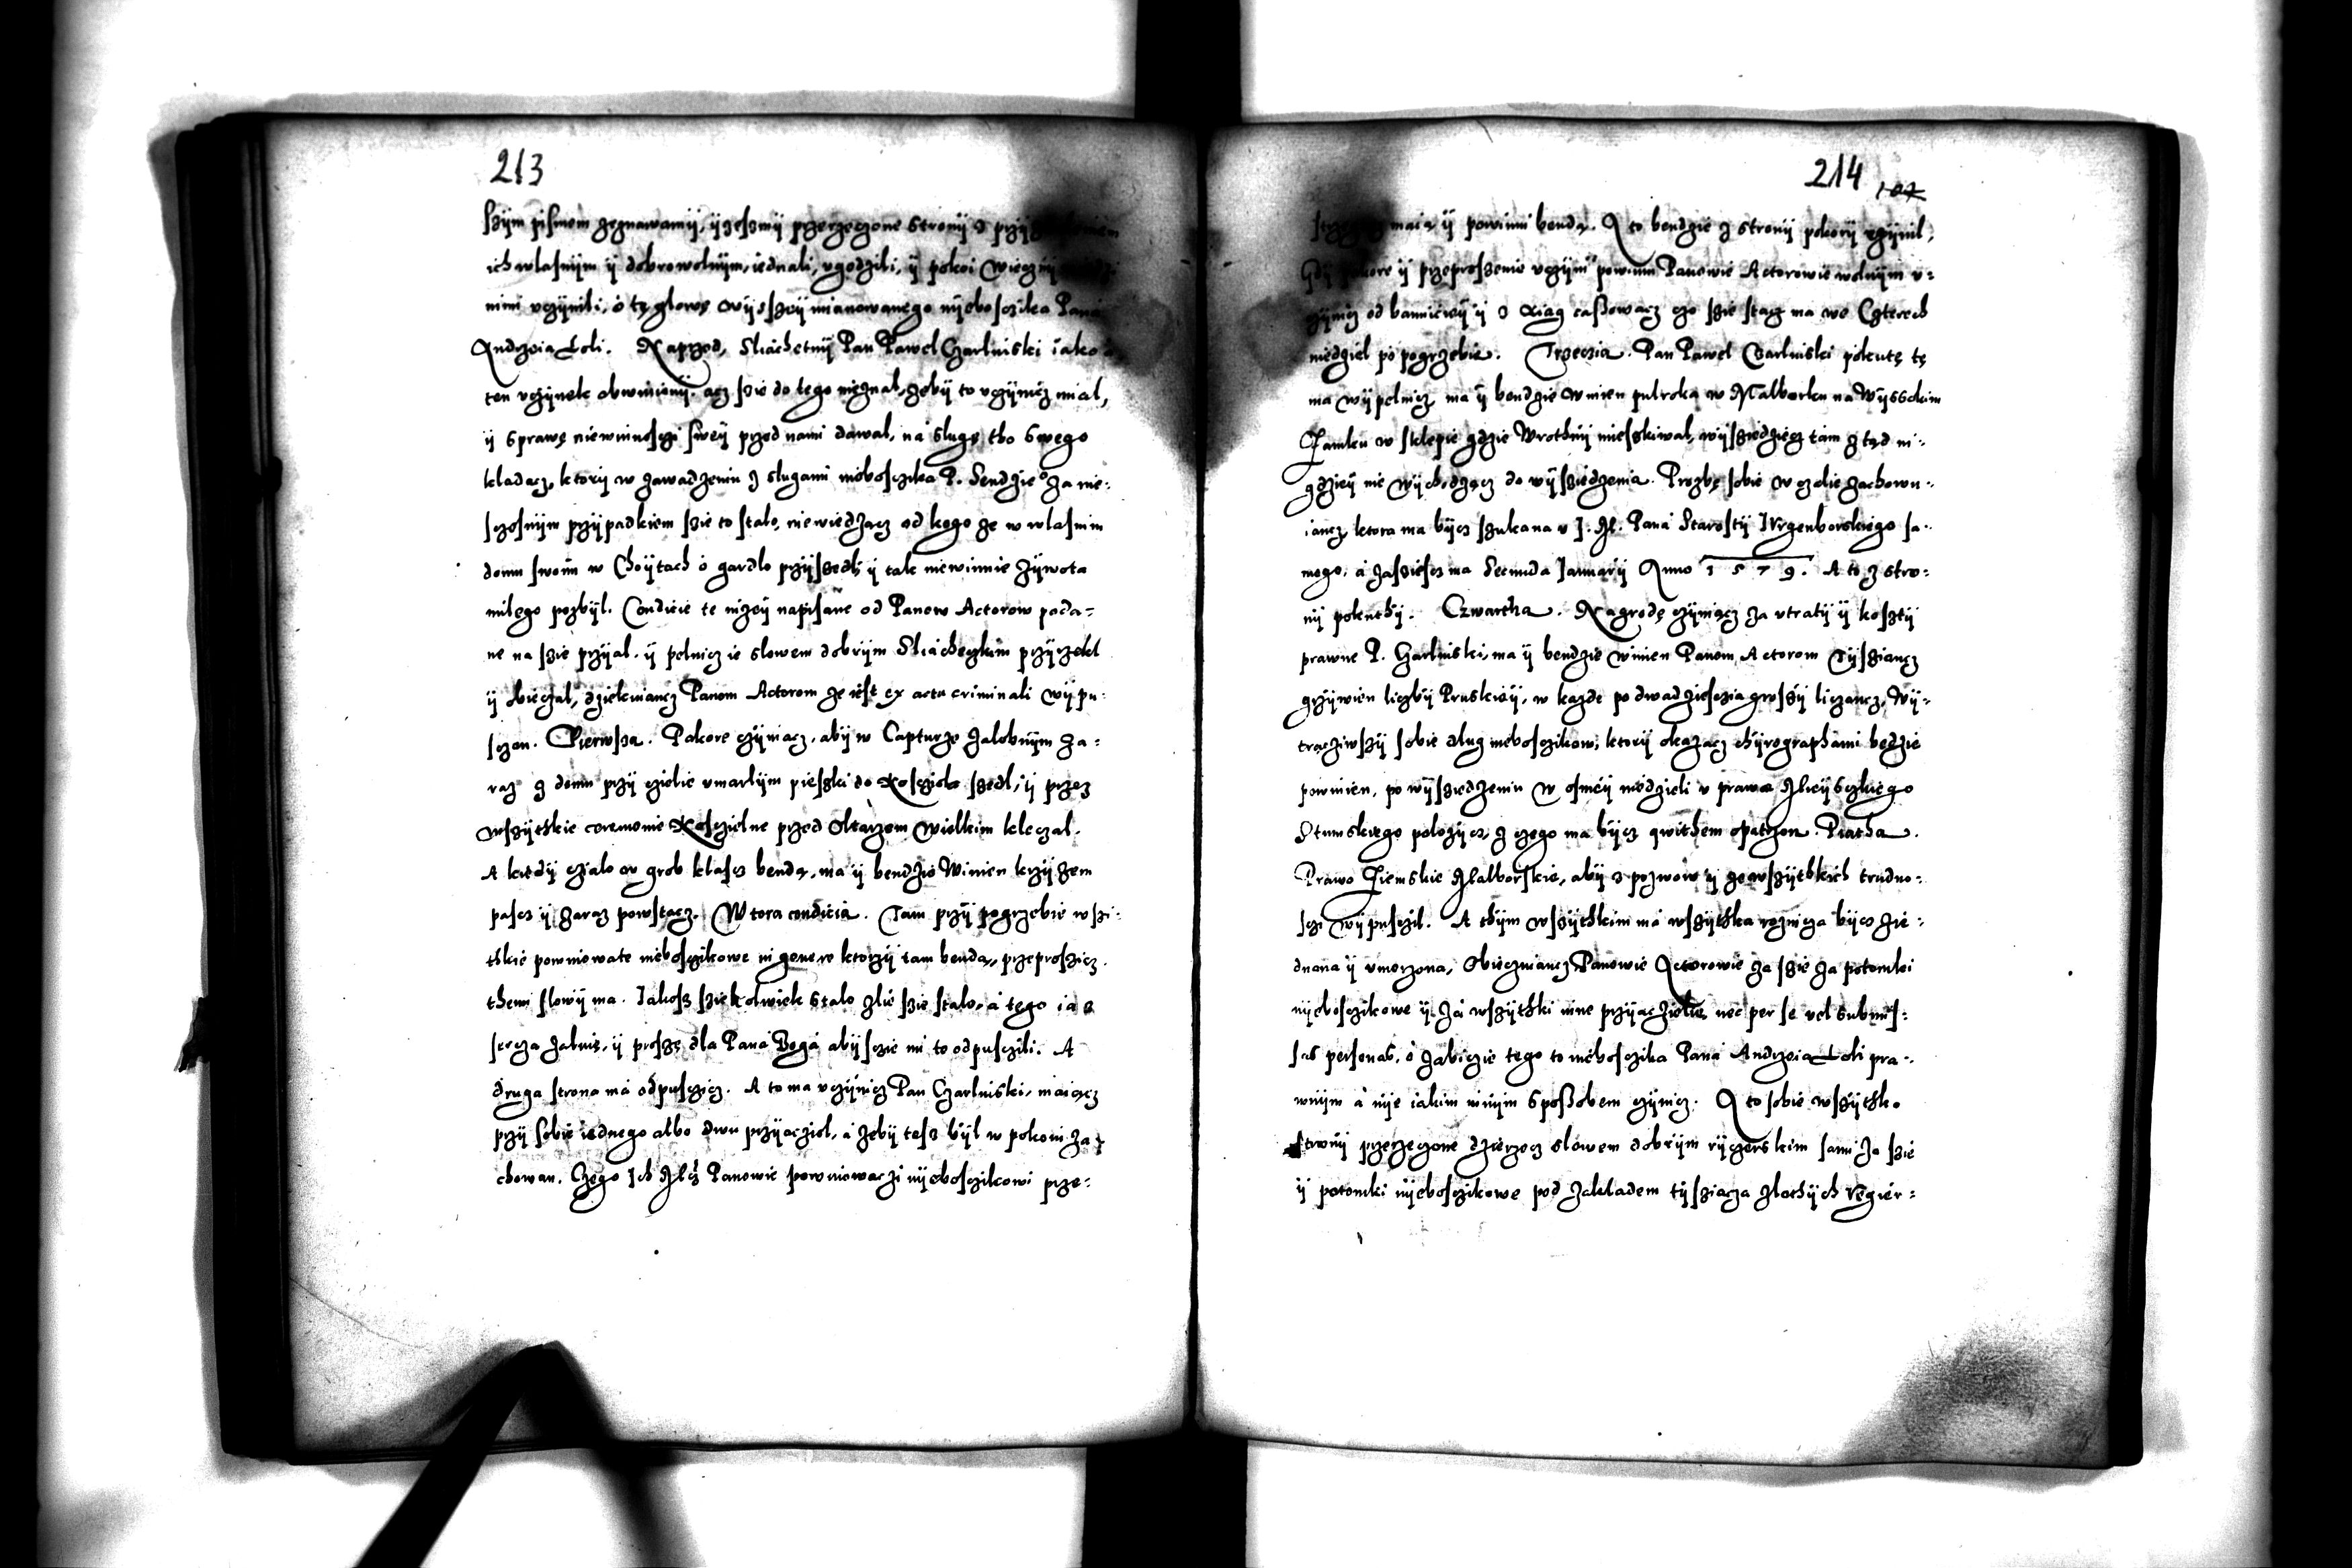 213
szÿm pismem zeznawamÿ, ÿzesmÿ przerzeczone stronÿ z przÿ
ich wlasnÿm ÿ dobrowolnÿm, iednali, vgodzili, ÿ pokoi wiecznÿ
nimi vczÿnili, o tę głowę wÿsszeÿ mianowanego nÿeboszczika Pana
Andrzeia Loli. Naprzod, Sliachetnÿ Pan Pawel Czarlinski iako
ten vczÿnek obwinionÿ, acz szie do tego nieznal, zebÿ to vczÿnicz mial,
ÿ sprawę niewinnoszczi sweÿ przed nami dawal, na slugę tho swego
kladacz, ktorÿ w zawadzeniu z slugami nieboszczika P. Sendzie za nie-
sczesnÿm przÿpadkiem szie to stalo, niewiedzacz od kogo ze w wlasnim
domu swoim w Choÿtach o gardlo przÿszedl, ÿ tak niewinnie zÿwota
milego pozbÿl. Condicie te nizeÿ napisane od Panow Actorow poda-
ne na szie przÿal. ÿ pelnicz ie slowem dobrÿm Sliacheczkim przÿrzekl
ÿ obieczal, dziekuiancz Panom Actorom ze iest ex actu criminali wÿpu-
sczon. Pierwsza. Pokore czÿniacz, abÿ w Capturze zalobnÿm za-
raz z domu przÿ czielie vmarlÿm pieszki do Kosciola szedl, ÿ przez
wszÿthkie ceremonie Kosczielne przed Oltarzem Wielkim kleczal.
A kiedÿ czialo w grob klascz benda, ma ÿ bendzie Winien krzÿzem
pascz ÿ zaraz powstacz. Wtora condicia. Tam przÿ pogrzebie wszi-
thkie powinowate nieboszczikowe in genere ktorzÿ tam benda, przeprosicz
themi slowÿ ma. Iakosz sziekolwiek stalo zlie szie stalo, a tego ia s
sercza zaluię, ÿ proszę dla Pana Boga abÿszcie mi to odpuscili. A
druga strona ma odpusczicz. A to ma vczÿnicz Pan Czarlinski, maiącz
przÿ sobie iednego albo dwu przÿaciol, a zebÿ tesz bÿl w pokoiu za-
chowan. Czego Ich Mcz Panowie powinowaczi nÿeboszczikowi prze-
214
107
maia ÿ powinni benda. A to bendzie z stronÿ pokorÿ vczÿnil,
Gdÿ pokore ÿ przeproszenie vczÿni powinni Panowie Actorowie wolnÿm v-
czÿnicz od bannicÿÿ ÿ z Xiag cassowacz czo szie stacz ma we Czterech
niedziel po pogrzebie. Trzeczia. Pan Pawel Czarlinski pokutę tę
ma wÿpelnicz, ma ÿ bendzie winien pulroka w Malborku na Wÿssokim
Zamku w sklepie gdzie Wrothnÿ mieszkiwal, wÿsziedziecz tam z tąd ni-
gdzieÿ nie wÿchodzącz do wÿsziedzenia. Prozbę sobie w czalie zachowu-
iancz, ktora ma bÿcz szukana v I. M. Pana Starostÿ Irgenborskiego sa-
mego, a zasziescz ma Secunda Ianuarÿ Anno 1579. A to z stro-
nÿ pokuthÿ. Czwartha. Nagrodę czÿniącz za vtratÿ ÿ kosztÿ
prawne P. Czarlinski, ma ÿ bendzie winien Panom Actorom Tÿsziancz
grzÿwien liczbÿ Pruskieÿ, w kazde po dwadziesczia groszÿ liczancz, Wÿ-
traciwszÿ sobie dlug nieboszczikow, ktorÿ okazacz chÿrographami będzie
powinien, po wÿsziedzeniu w osmeÿ niedzieli v prawa Mieÿsczkiego
Stumskiego polozÿcz, z czego ma bÿcz qwithem opatrzon. Piatha.
Prawo Ziemskie Malborskie, abÿ z pozwow ÿ ze wszÿthkich trudno-
sczi wÿpuscil. A thÿm wszÿthkim ma wszÿthka roznicza bÿcz zie-
dnana ÿ vmorzona, Obieczuiancz Panowie Actorowie za szie za potomki
nÿeboszczikowe ÿ za wszÿthki inne przÿacziele, nec per se vel submis-
sas personas, o zabiczie tego to nieboszczika Pana Andrzeia Loli pra-
wnÿm a nÿe iakim innÿm sposobem czÿnicz. A to sobie wszÿthko
stronÿ przerzeczone dzierzecz slowem dobrÿm rÿczerskim sami za szie
ÿ potomki nÿeboszczikowe pod zakladem tÿsziacza zlothÿch vęgier-